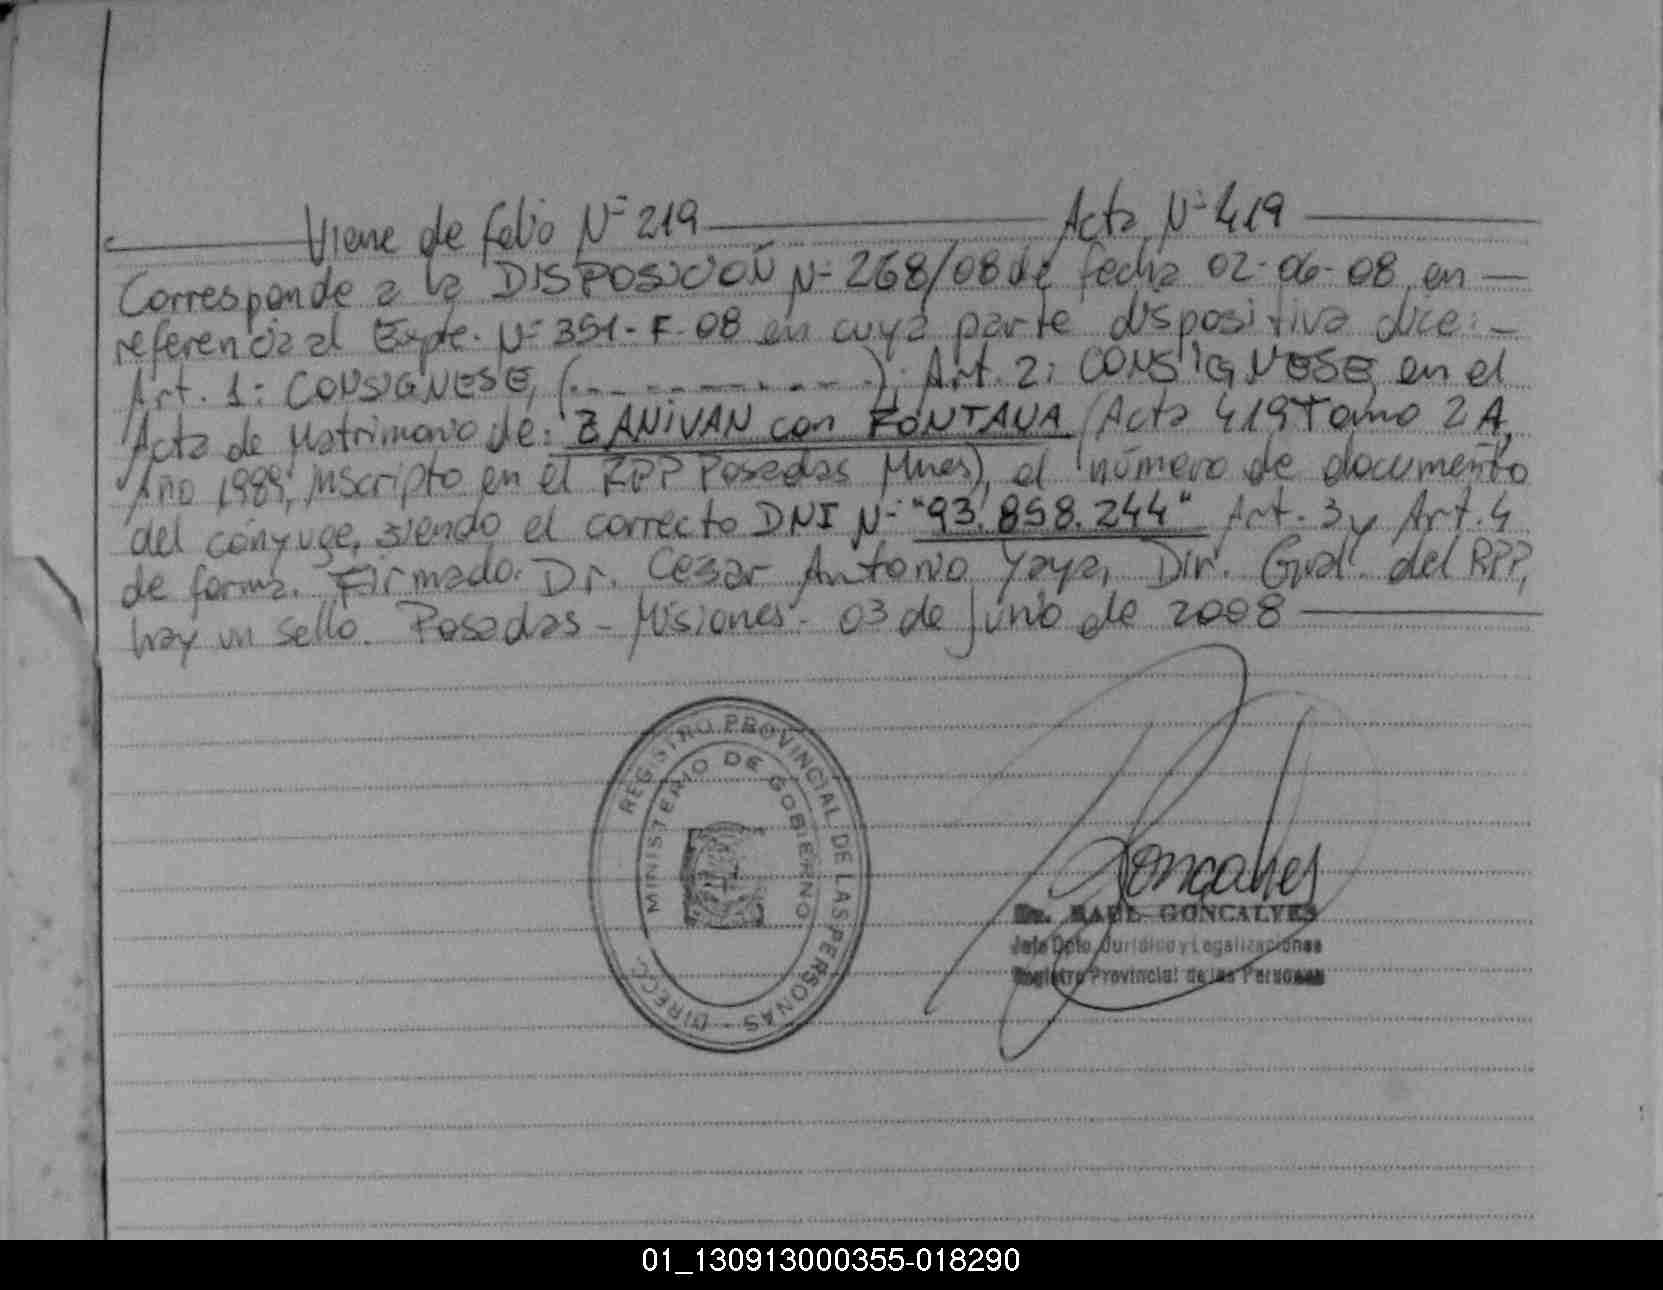 Viene de folio Nº 219 Acta Nº 419
Corresponde a la DISPOSICION Nº 268/08 de fecha 02-06-08 en
referencia al Expte. Nº 351-F-08 en cuya parte dispositiva dice:
Art. 1: CONSIGNESE, (............); Art. 2: CONSIGNESE en el
Acta de Matrimonio de: ZANIVAN con FONTANA (Acta 419 Tomo 2A,
Año 1989, inscripto en el RPP Posadas Mnes), el número de documento
del cónyuge, siendo el correcto DNI Nº "93.858.244" Art. 3 y Art. 4
de forma. Firmado: Dr. Cesar Antonio Yaya, Dir. Gral. del RPP,
hay un sello. Posadas - Misiones - 03 de Junio de 2008
REGISTRO PROVINCIAL DE LAS PERSONAS - DIRECC
MINISTERIO DE GOBIERNO
Goncalves
Dr. RAUL GONCALVES
Jefe Dpto. Jurídico y Legalizaciones
Registro Provincial de las Personas
01_130913000355-018290